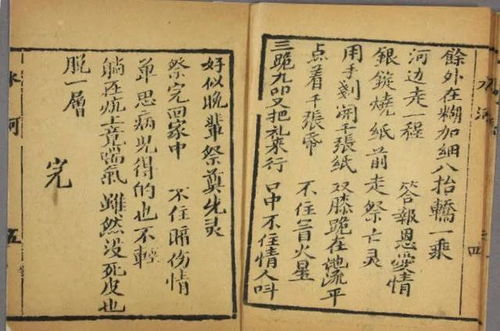 餘外在糊加細八抬轎一乘
河边走一程　答報恩愛情
銀錠燒紙前走祭亡灵
用手剝開千張紙　双膝跪在地流平
点着千張帋　不住冒火星
三跪九叩又把礼来行　口中不住情人叫
四
好似晚輩祭奠先灵
祭完回家中　不住暗伤情
单思病児得的也不輕
躺在炕上竟喘氣　雖然没死皮也
脱一層　完
河　五